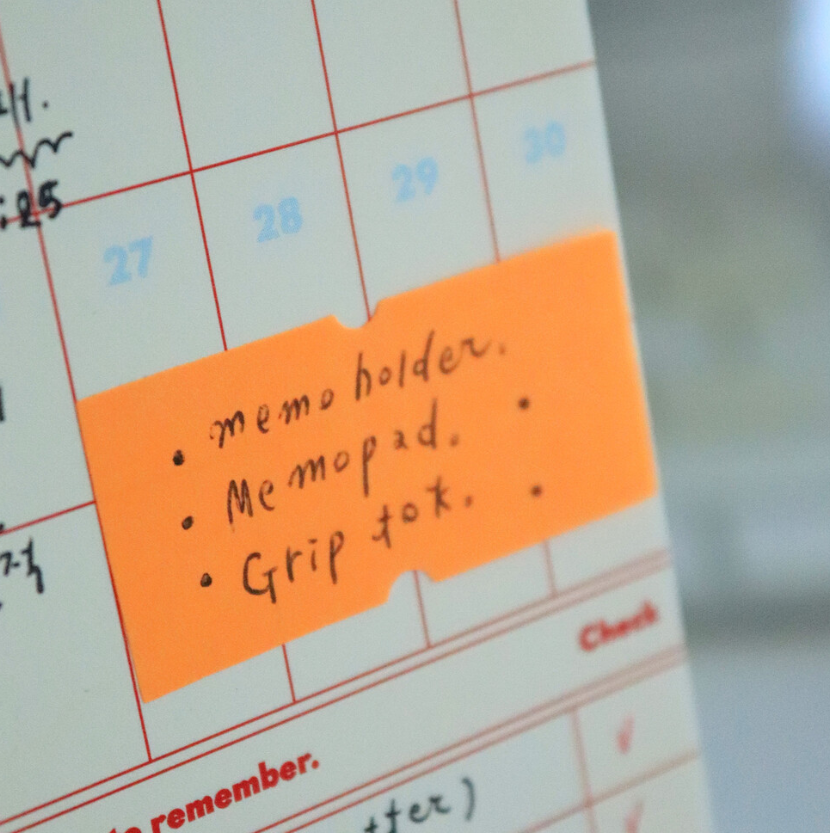 :25
27 28 29 30
• memo holder.
• Memopad. •
• Grip tok. •
Check
to remember.
tter)